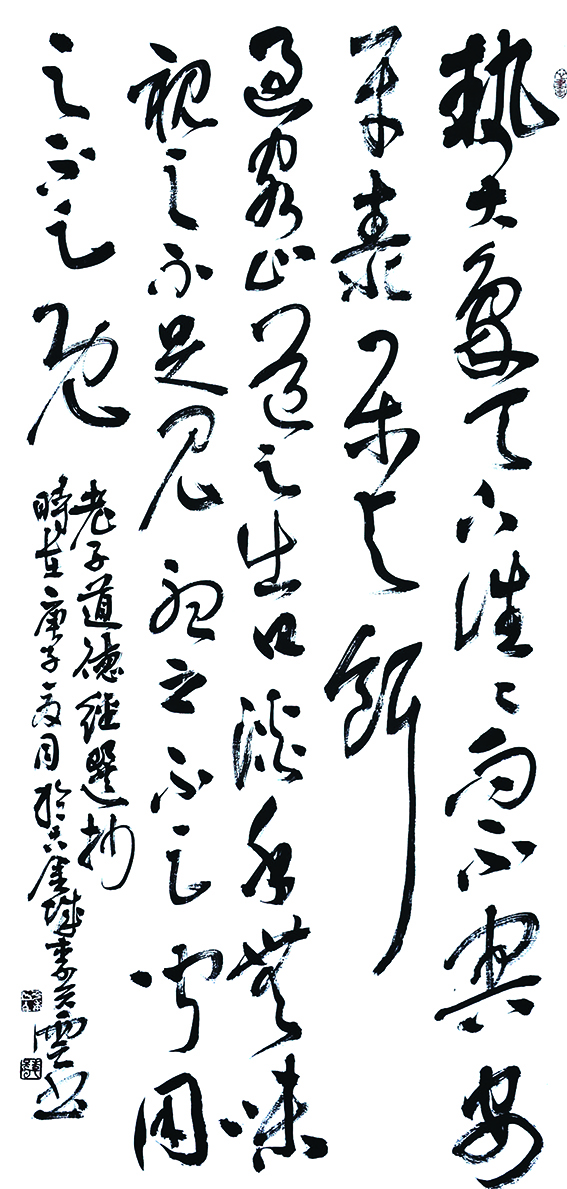 執大象天下往〻而不害安
平泰樂與餌
過客止道之出口淡乎無味
視之不足見聽之不足聞用
之不足既
老子道德經選抄
時在庚子夏月於古金城李雲书